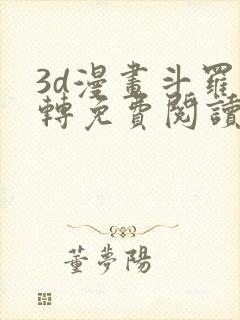 3d漫畫斗羅
轉免費閱讀
董夢陽